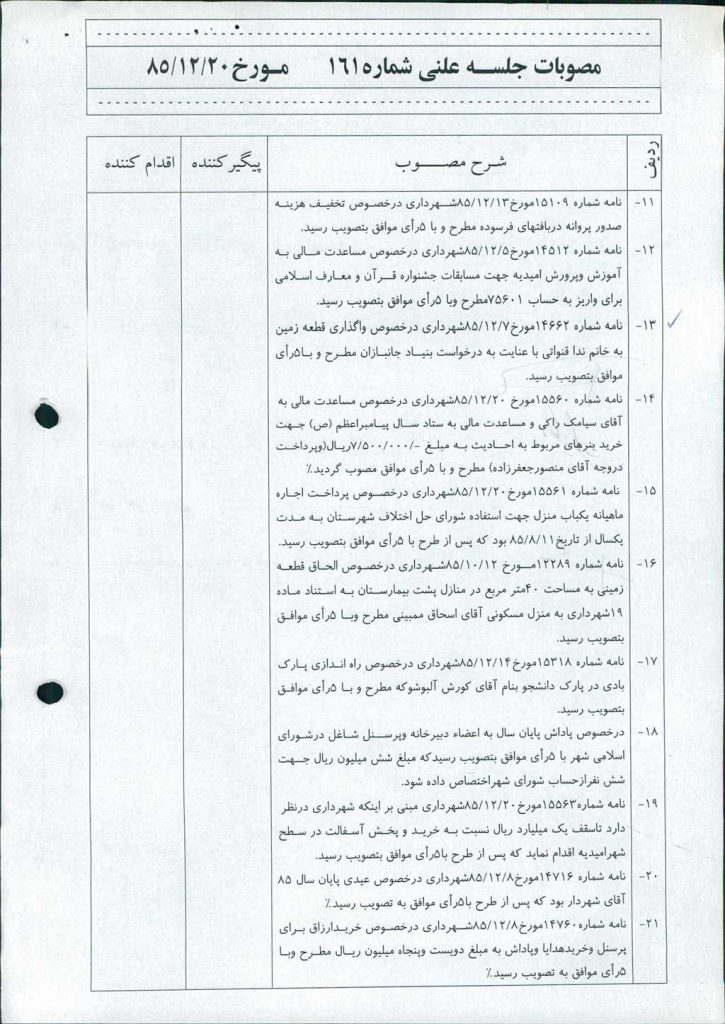 مصوبات جلسه علنی شماره ۱۶۱ مورخ ۸۵/۱۲/۲۰
ردیف شرح مصوب پیگیرکننده اقدام کننده
۱۱- نامه شماره ۱۵۱۰۹مورخ۸۵/۱۲/۱۳شهرداری درخصوص تخفیف هزینه
صدور پروانه دربافتهای فرسوده مطرح و با ۵رأی موافق بتصویب رسید.
۱۲- نامه شماره ۱۴۵۱۲مورخ۸۵/۱۲/۵شهرداری درخصوص مساعدت مالی به
آموزش وپرورش امیدیه جهت مسابقات جشنواره قرآن و معارف اسلامی
برای واریز به حساب ۷۵۶۰۱مطرح وبا ۵رأی موافق بتصویب رسید.
۱۳- نامه شماره ۱۴۶۶۲مورخ۸۵/۱۲/۷شهرداری درخصوص واگذاری قطعه زمین
به خانم ندا قنواتی با عنایت به درخواست بنیاد جانبازان مطرح و با۵رأی
موافق بتصویب رسید.
۱۴- نامه شماره ۱۵۵۶۰مورخ ۸۵/۱۲/۲۰شهرداری درخصوص مساعدت مالی به
آقای سیامک راکی و مساعدت مالی به ستاد سال پیامبراعظم (ص) جهت
خرید بنرهای مربوط به احادیث به مبلغ -/۷/۵۰۰/۰۰۰ریال(وپرداخت
دروجه آقای منصورجعفرزاده) مطرح و با ۵رأی موافق مصوب گردید.٪
۱۵- نامه شماره ۱۵۵۶۱مورخ۸۵/۱۲/۲۰شهرداری درخصوص پرداخت اجاره
ماهیانه یکباب منزل جهت استفاده شورای حل اختلاف شهرستان به مدت
یکسال از تاریخ۸۵/۸/۱۱ بود که پس از طرح با ۵رأی موافق بتصویب رسید.
۱۶- نامه شماره ۱۲۲۸۹مورخ ۸۵/۱۰/۱۲شهرداری درخصوص الحاق قطعه
زمینی به مساحت ۴۰متر مربع در منازل پشت بیمارستان به استناد ماده
۱۹شهرداری به منزل مسکونی آقای اسحاق ممبینی مطرح وبا ۵رأی موافق
بتصویب رسید.
۱۷- نامه شماره ۱۵۳۱۸مورخ۸۵/۱۲/۱۴شهرداری درخصوص راه اندازی پارک
بادی در پارک دانشجو بنام آقای کورش آلبوشوکه مطرح و با ۵رأی موافق
بتصویب رسید.
۱۸- درخصوص پاداش پایان سال به اعضاء دبیرخانه وپرسنل شاغل درشورای
اسلامی شهر با ۵رأی موافق بتصویب رسیدکه مبلغ شش میلیون ریال جهت
شش نفرازحساب شورای شهراختصاص داده شود.
۱۹- نامه شماره۱۵۵۶۳مورخ۸۵/۱۲/۲۰شهرداری مبنی بر اینکه شهرداری درنظر
دارد تاسقف یک میلیارد ریال نسبت به خرید و پخش آسفالت در سطح
شهرامیدیه اقدام نماید که پس از طرح با۵رأی موافق بتصویب رسید.
۲۰- نامه شماره ۱۴۷۱۶مورخ۸۵/۱۲/۸شهرداری درخصوص عیدی پایان سال ۸۵
آقای شهردار بود که پس از طرح با۵رأی موافق به تصویب رسید.٪
۲۱- نامه شماره۱۴۷۶۰مورخ۸۵/۱۲/۸شهرداری درخصوص خریدارزاق برای
پرسنل وخریدهدایا وپاداش به مبلغ دویست وپنجاه میلیون ریال مطرح وبا
۵رأی موافق به تصویب رسید.٪